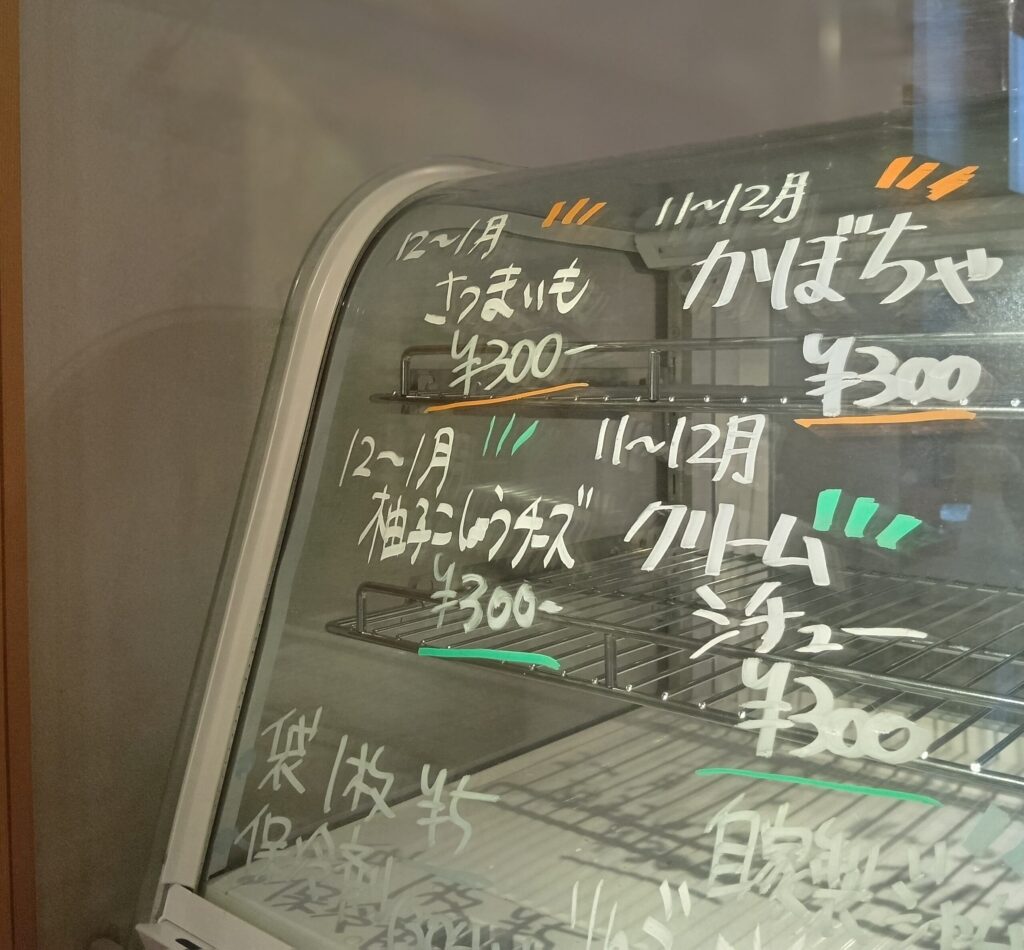 12〜1月
さつまいも
¥300-
11〜12月
かぼちゃ
¥300
12〜1月
柚子こしょうチーズ
¥300-
11〜12月
クリーム
シチュー
¥300
袋1枚¥5
保冷剤
自家製